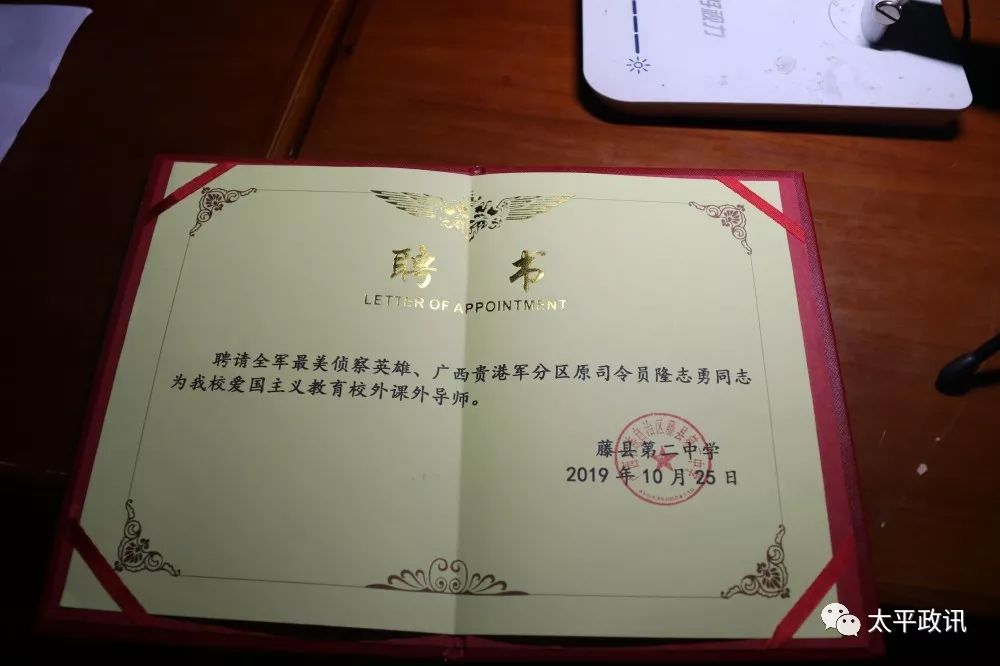 聘书
LETTER OF APPOINTMENT
聘请全军最美侦察英雄、广西贵港军分区原司令员隆志勇同志
为我校爱国主义教育校外课外导师。
藤县第二中学
2019年10月25日
太平政讯